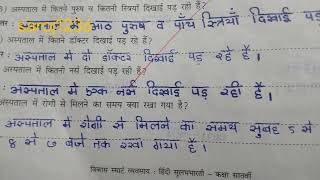 अस्पताल में कितने पुरुष व कितनी स्त्रियाँ दिखाई पड़ रही हैं?
में आठ पुरुष व पाँच स्त्रियाँ दिखाई पड़
अस्पताल में कितने डॉक्टर दिखाई पड़ रहे हैं?
अस्पताल में दो डॉक्टर दिखाई पड़ रहे हैं।
अस्पताल में कितनी नर्स दिखाई पड़ रही हैं?
अस्पताल में एक नर्स दिखाई पड़ रही हैं।
अस्पताल में रोगी से मिलने का समय क्या रखा गया है?
अस्पताल में रोगी से मिलने का समय सुबह ५ से
८ से ७ बजे तक रखा गया हैं।
विकास स्मार्ट व्यवसाय : हिंदी सुलभभारती - कक्षा सातवीं